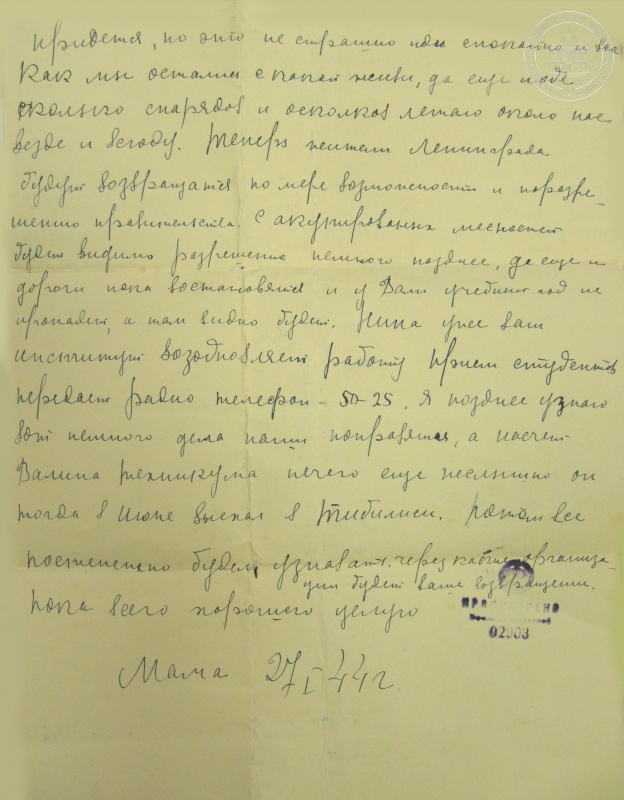 придется, но это не страшно
как мы остались с папой живы, да еще
сколько снарядов и осколков летало около нас
везде и всюду. Теперь жители Ленинграда
будут возвращатся по мере возможности и поразре-
шению правительства. С акупированных месностей
будет видимо разрешение немного позднее, да еще и
дороги пока востановятся и у Вали учебный год не
пропадет, а там видно будет. Нина уже ваш
институт возобновляет работу прием студентов
передает радио телефон - 50-25. Я позднее узнаю
вот немного дела наши поправятся, а насчет
Валина техникума нечего еще неслышно он
тогда в июне выехал в Тибилиси. Потом все
постепенно будем узнавать. через какие организа-
ции будет ваше возвращение.
пока всего хорошего целую
ПРОСМОТРЕНО
Военной Цензурой
02903
Мама 27 I 44 г.